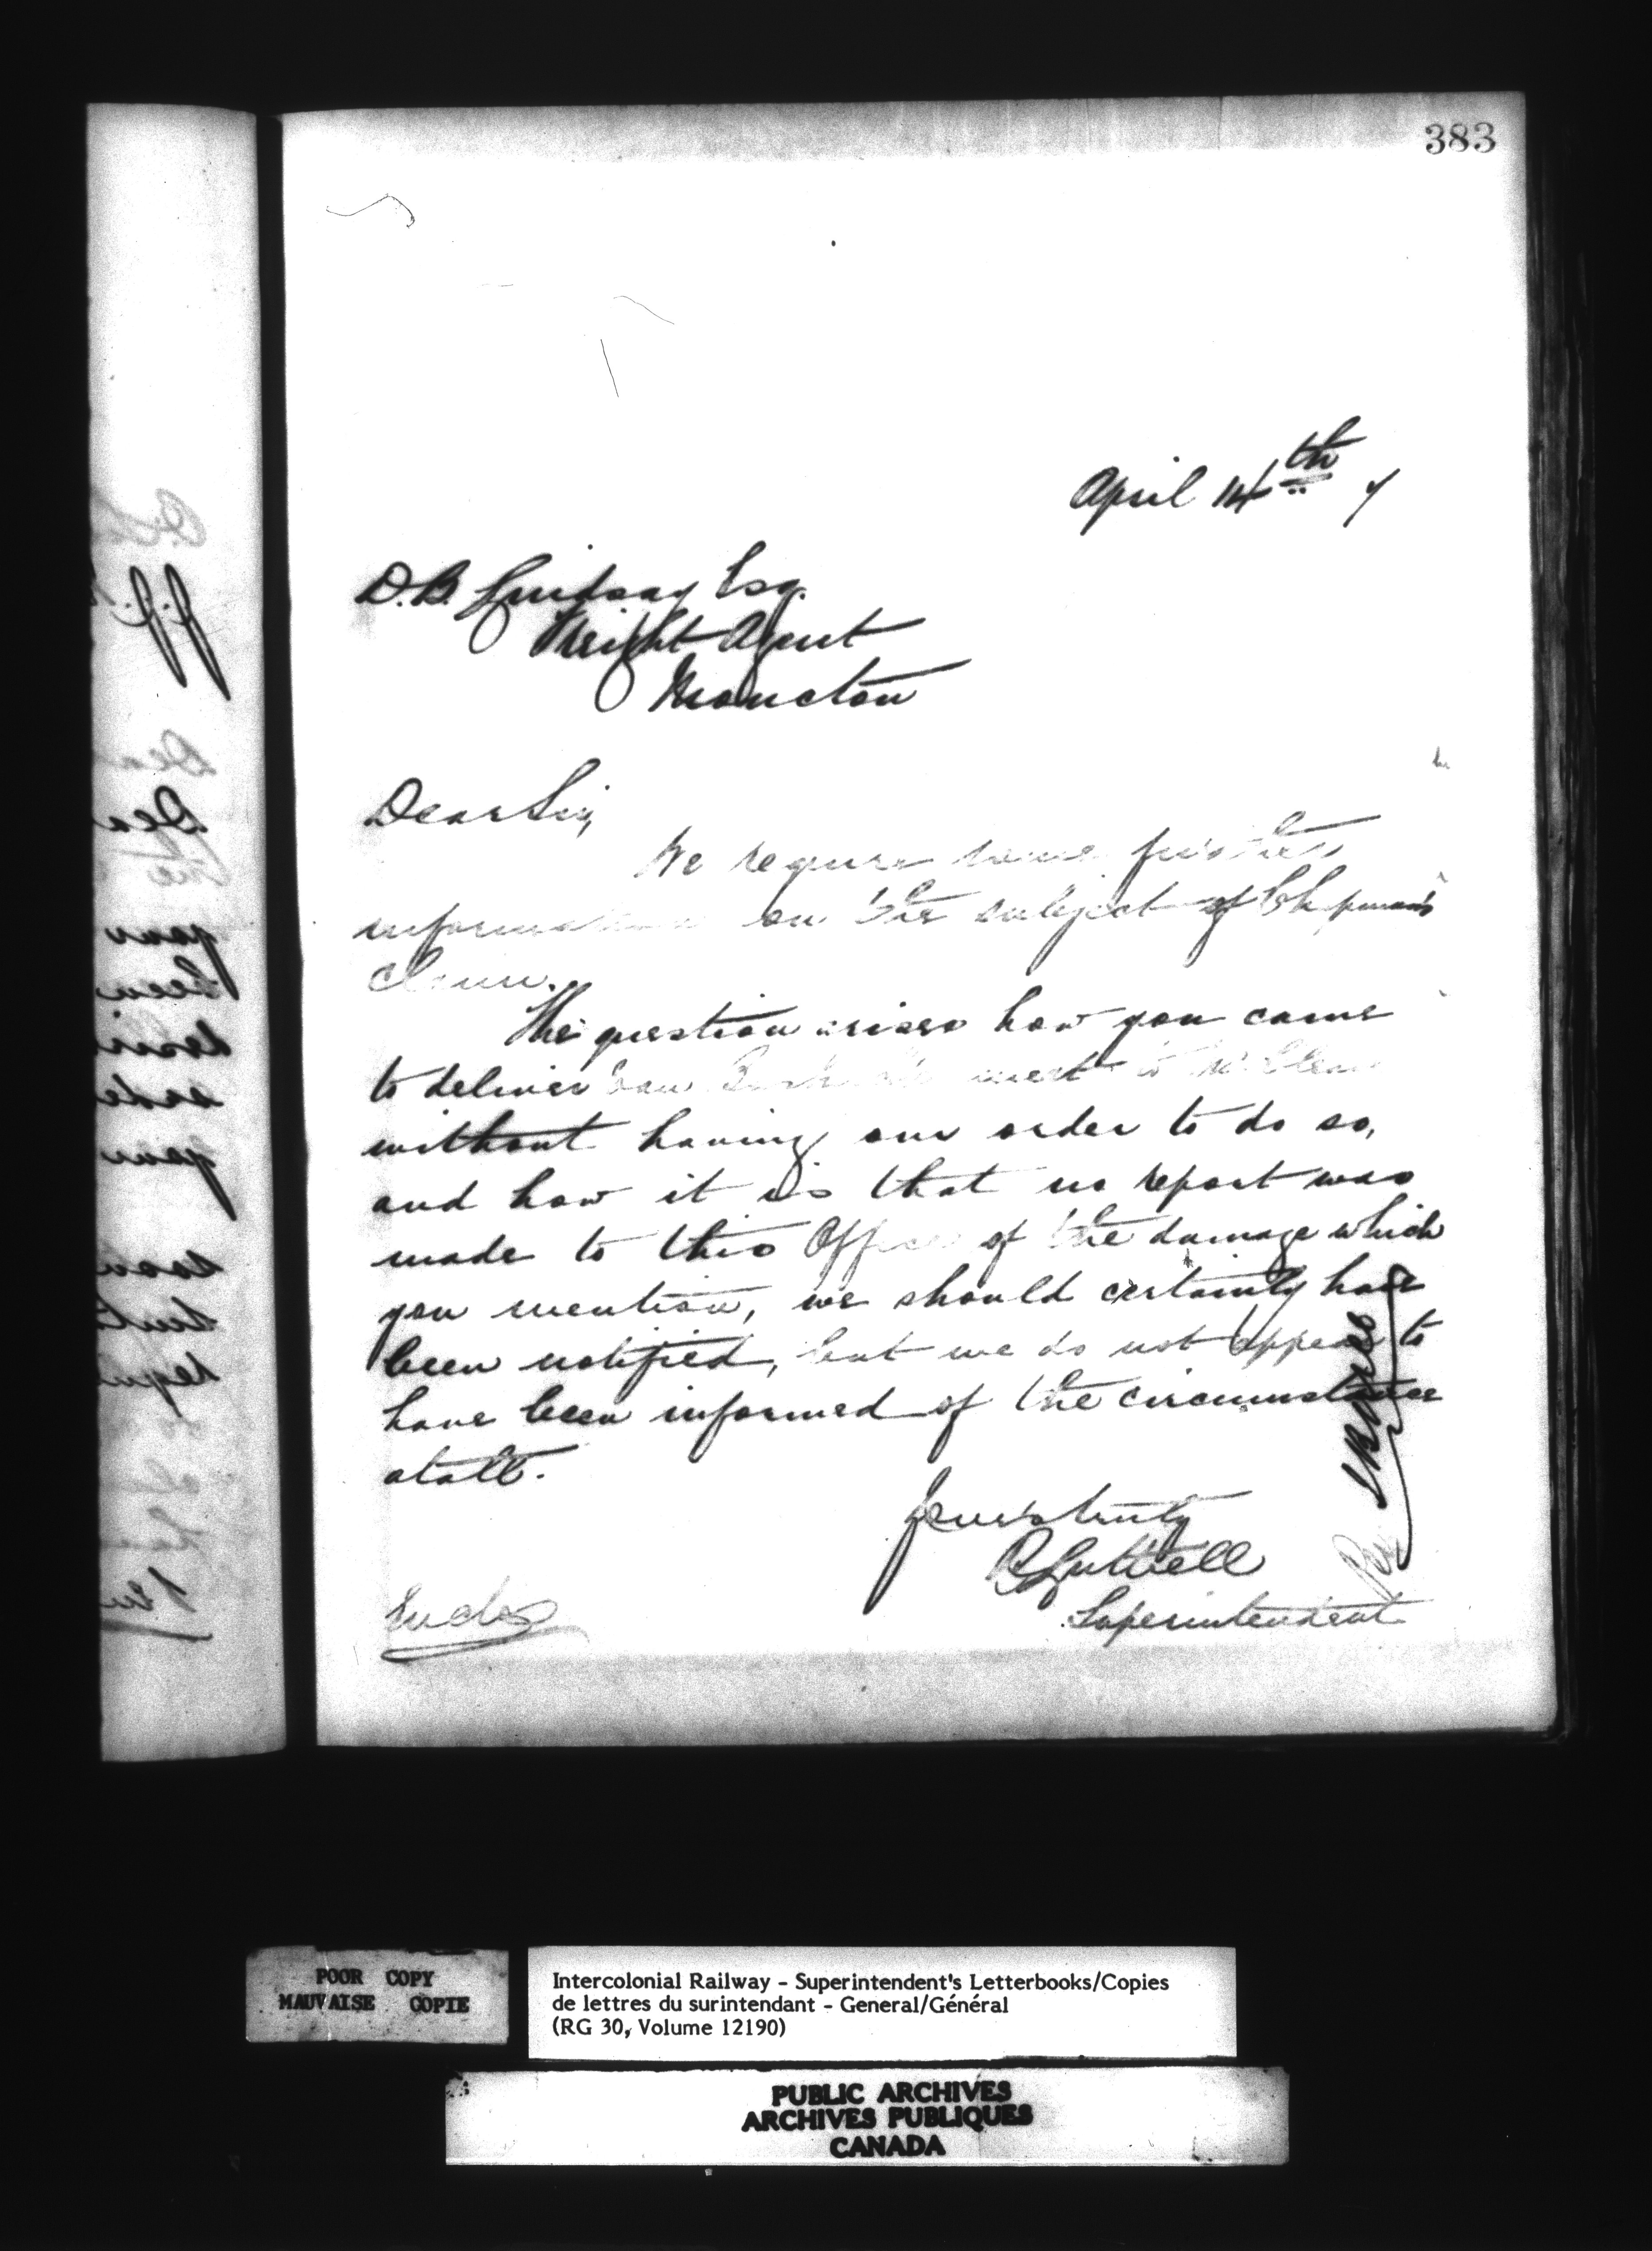 383
April 14th 7
D.B. Lindsay Esq.
Freight Agent
Moncton
Dear Sir,
We require some further
information on the subject of Chapman's
claim.
The question arises how you came
to deliver
without having our order to do so,
and how it is that no report was
made to this Office of the damage which
you mention, we should certainly have
been notified, but we do not appear to
have been informed of the circumstance
atall.
Yours truly
R Luttrell
Superintendent
Per
Encls
POOR COPY
MAUVAISE COPIE
Intercolonial Railway - Superintendent's Letterbooks/Copies
de lettres du surintendant - General/Général
(RG 30, Volume 12190)
PUBLIC ARCHIVES
ARCHIVES PUBLIQUES
CANADA